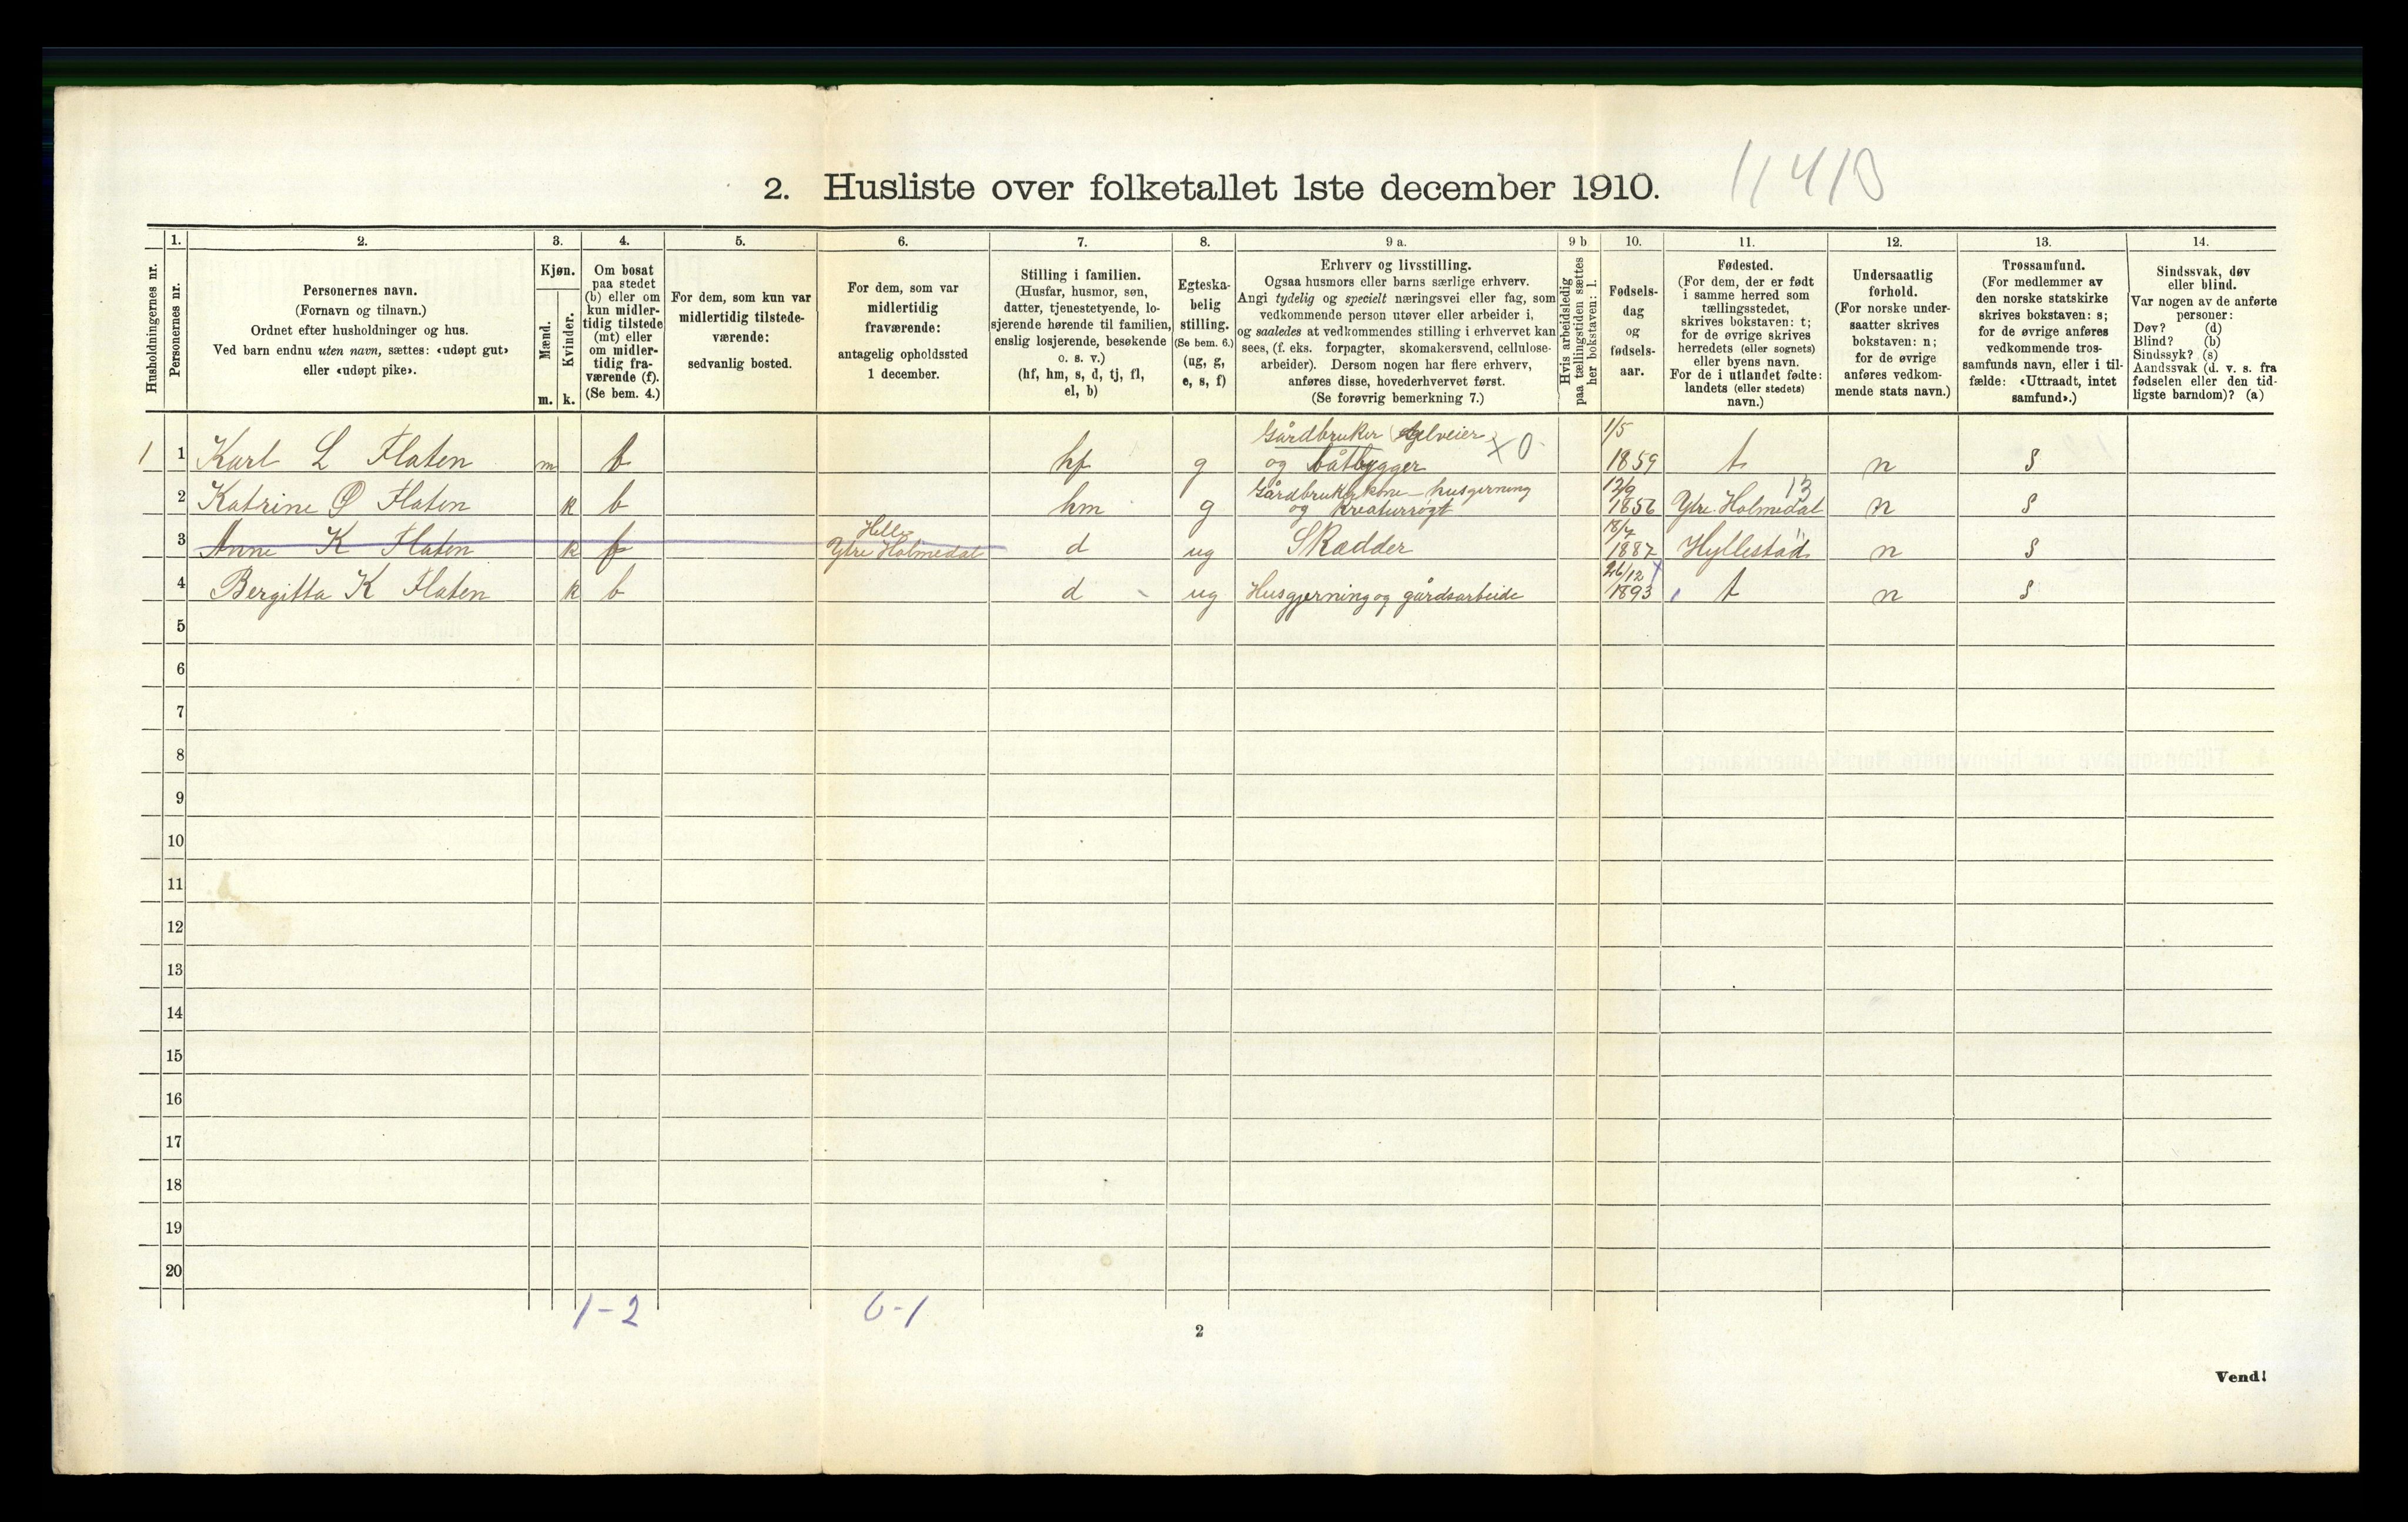 2. Husliste over folketallet 1ste december 1910.
Husholdningernes nr.
1.
Personernes nr.
2.
Personernes navn.
(Fornavn og tilnavn.)
Ordnet efter husholdninger og hus.
Ved barn endnu uten navn, sættes: «udøpt gut»
eller «udøpt pike».
3.
Kjøn.
Mænd.
Kvinder.
m. k.
4.
Om bosat
paa stedet
(b) eller om
kun midler-
tidig tilstede
(mt) eller
om midler-
tidig fra-
værende (f).
(Se bem. 4.)
5.
For dem, som kun var
midlertidig tilstede-
værende:
sedvanlig bosted.
6.
For dem, som var
midlertidig
fraværende:
antagelig opholdssted
1 december.
7.
Stilling i familien.
(Husfar, husmor, søn,
datter, tjenestetyende, lo-
sjerende hørende til familien,
enslig losjerende, besøkende
o. s. v.)
(hf, hm, s, d, tj, fl,
el, b)
8.
Egteska-
belig
stilling.
(Se bem. 6.)
(ug, g,
e, s, f)
9 a.
Erhverv og livsstilling.
Ogsaa husmors eller barns særlige erhverv.
Angi tydelig og specielt næringsvei eller fag, som
vedkommende person utøver eller arbeider i,
og saaledes at vedkommendes stilling i erhvervet kan
sees, (f. eks. forpagter, skomakersvend, cellulose-
arbeider). Dersom nogen har flere erhverv,
anføres disse, hovederhvervet først.
(Se forøvrig bemerkning 7.)
9 b
Hvis arbeidsledig
paa tællingstiden sættes
her bokstaven: l.
10.
Fødsels-
dag
og
fødsels-
aar.
11.
Fødested.
(For dem, der er født
i samme herred som
tællingsstedet,
skrives bokstaven: t;
for de øvrige skrives
herredets (eller sognets)
eller byens navn.
For de i utlandet fødte:
landets (eller stedets)
navn.)
12.
Undersaatlig
forhold.
(For norske under-
saatter skrives
bokstaven: n;
for de øvrige
anføres vedkom-
mende stats navn.)
13.
Trossamfund.
(For medlemmer av
den norske statskirke
skrives bokstaven: s;
for de øvrige anføres
vedkommende tros-
samfunds navn, eller i til-
fælde: «Uttraadt, intet
samfund».)
14.
Sindssvak, døv
eller blind.
Var nogen av de anførte
personer:
Døv? (d)
Blind? (b)
Sindssyk? (s)
Aandssvak (d. v. s. fra
fødselen eller den tid-
ligste barndom)? (a)
1 1 Karl L Flaten m b hf g Gårdbruker selveier og båtbygger x0 1/5 1859 t n s
2 Katrine Ø Flaten k b hm g Gårdbrukerkone - husgerning og kreaturrøgt 12/9 1856 Ytre Holmedal 13 n s
3 Anne K Flaten k f Helle Ytre Holmedal d ug Skrædder 18/7 1887 Hyllestad n s
4 Bergitta K Flaten k b d ug Husgjerning og gårdsarbeide 26/12 1893 t n s
5
6
7
8
9
10
11
12
13
14
15
16
17
18
19
20
1-2 0-1
2
Vend!